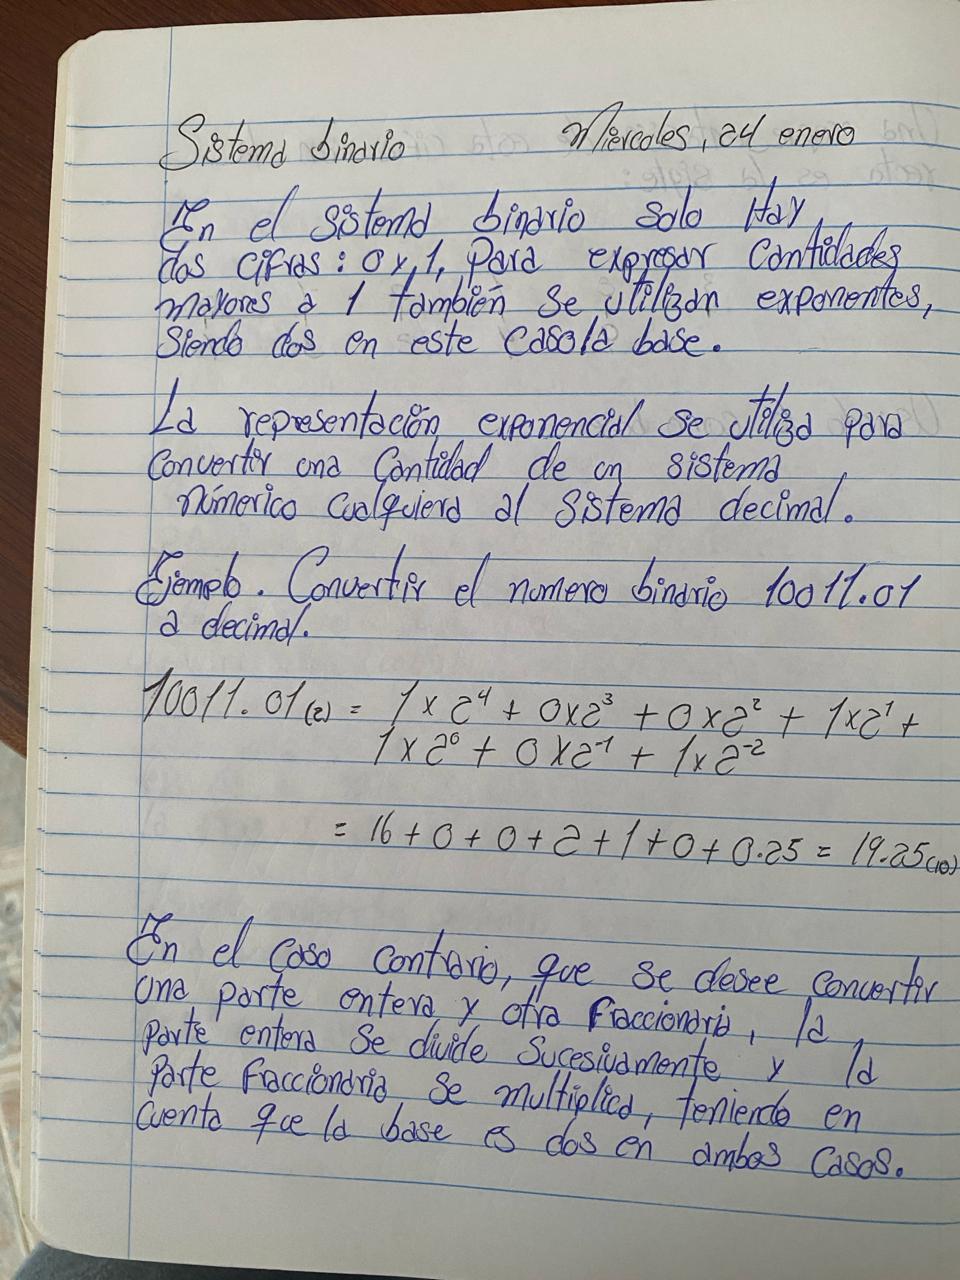 Sistema binario Miércoles, 24 enero
En el sistema binario solo Hay
dos cifras: 0 y 1, para expresar cantidades
mayores a 1 también se utilizan exponentes,
siendo dos en este caso la base.
La representación exponencial se utiliza para
convertir una cantidad de un sistema
númerico cualquiera al sistema decimal.
Ejemplo. Convertir el numero binario 10011.01
a decimal.
10011.01(2) = 1x2⁴ + 0x2³ + 0x2² + 1x2¹ +
1x2⁰ + 0x2⁻¹ + 1x2⁻²
= 16 + 0 + 0 + 2 + 1 + 0 + 0.25 = 19.25(10)
En el caso contrario, que se desee convertir
una parte entera y otra fraccionaria, la
parte entera se divide sucesivamente y la
parte fraccionaria se multiplica, teniendo en
cuenta que la base es dos en ambos casos.